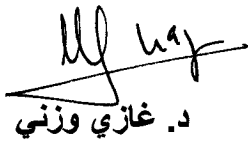 د. غازي وزني